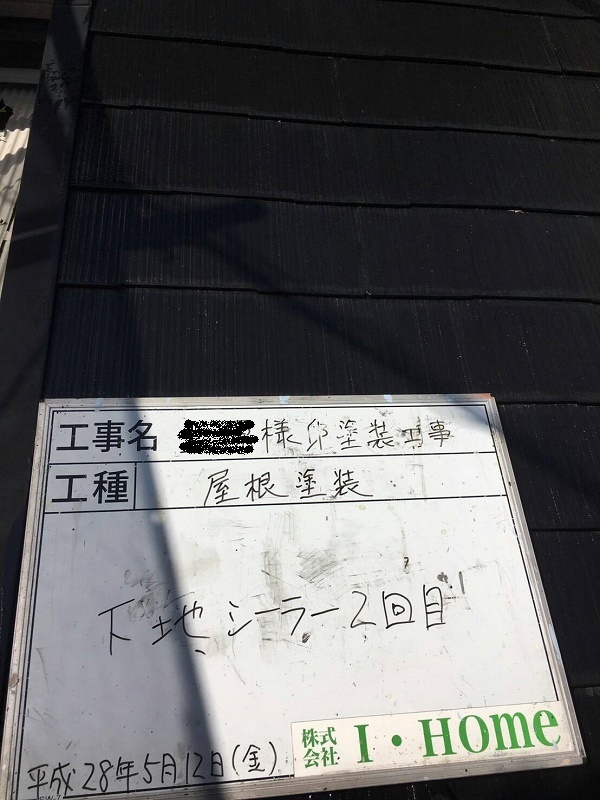 工事名 様邸塗装工事
工種 屋根塗装
下地シーラー2回目
平成28年5月12日(金)
株式会社 I・Home